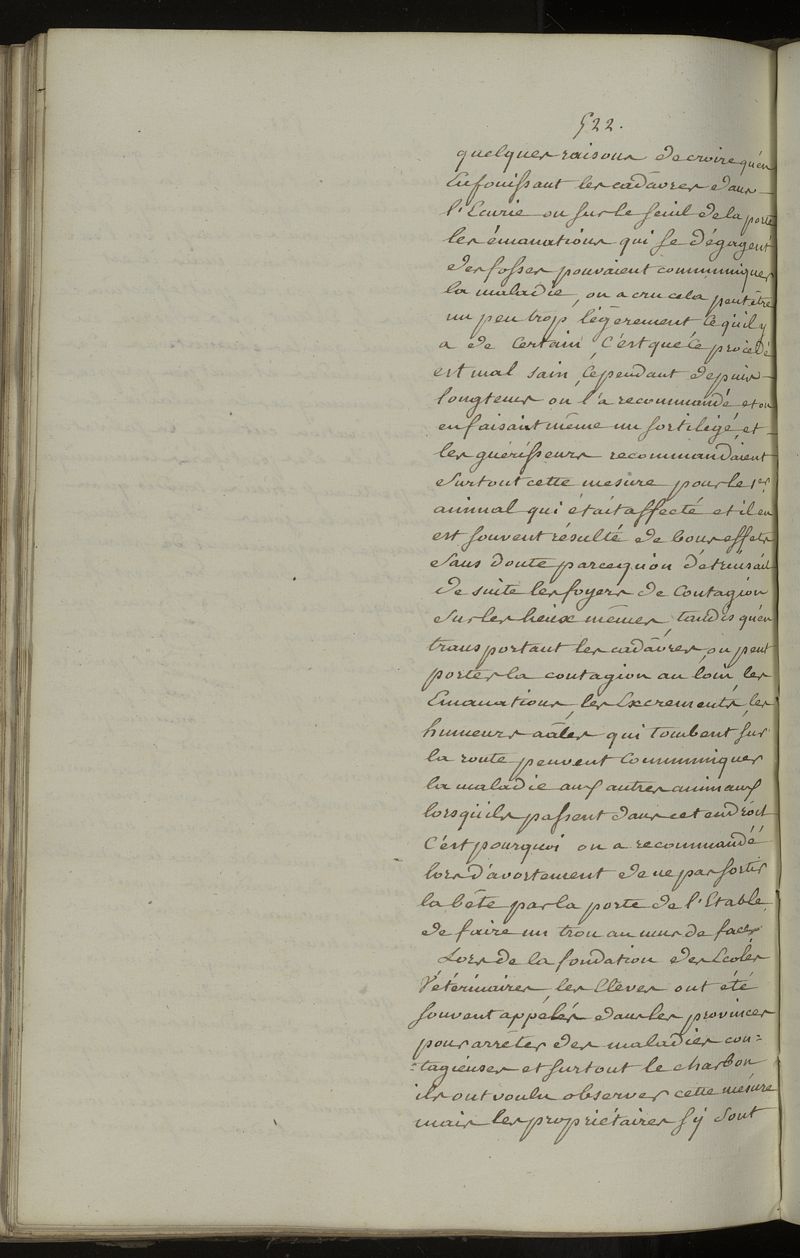 522.
quelques raisons de croire qu'en
Enfouissant les cadâvres dans
l'Ecurie ou sur le seuil de la porte
les émanations qui se dégagent
des fosses pouvaient communiquer
la maladie, on a cru cela peut être
un peu trop légèrement ce qu'il y
a de Certain, C'est que ce procédé
est mal sain, Cependant depuis
longtems on l'a recommandé et on
en faisait même un sortilégé, et
les guérisseurs recommandaient
surtout cette mesure pour le 1er
animal qui était affecté et il en
est souvent résulté de bons effets
sans doute parcequ'on détruisait
de suite les foyers de Contagion
sur les lieux mêmes, tandis qu'en
transportant les cadâvres, on peut
porter la contagion au loin, les
Emanations, les Excréments, les
humeurs aâles qui tombent sur
la route peuvent Communiquer
la maladie aux autres animaux
lorsqu'ils passent dans cet endroit
C'est pourquoi on a recommandé
lors d'avortement de ne pas sortir
la bête par la porte de l'Etable
de faire un trou au mur de face
Lors de la fondation des Ecoles
Vétérinaires, les Eleves ont été
souvent appélés dans les provinces
pour arrêter des maladies con=
=tagieuses et surtout le charbon
ils ont voulu observer cette mesure
mais les propriétaires s'y sont